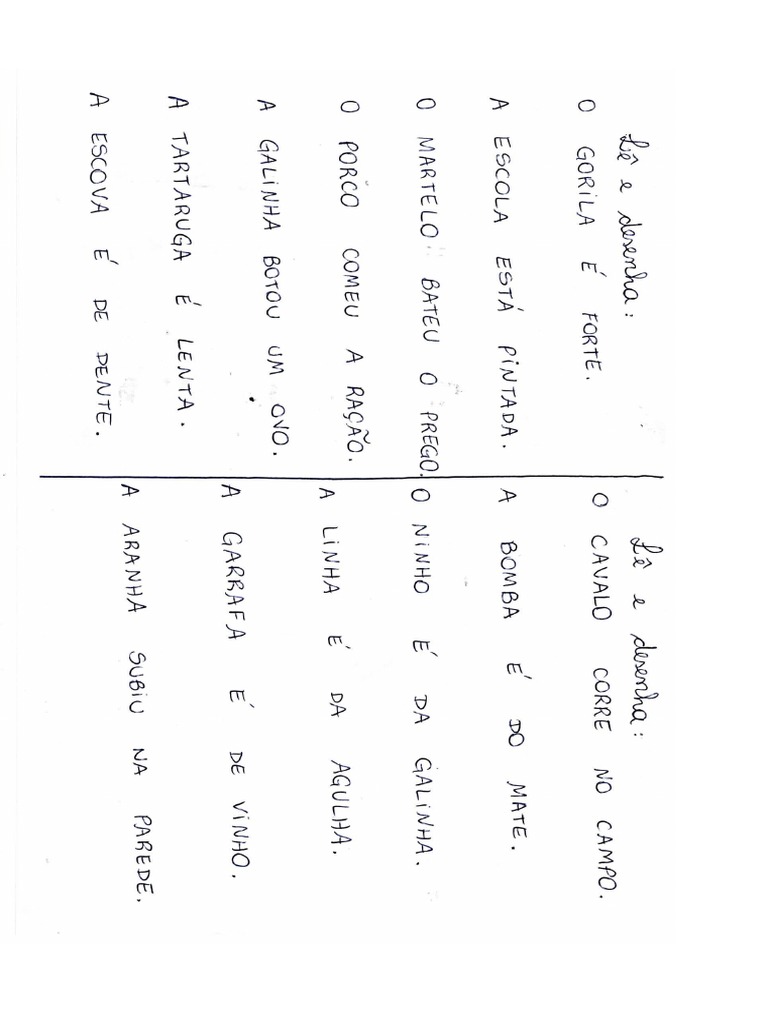 Lê e desenha:
O GORILA É FORTE.
A ESCOLA ESTÁ PINTADA.
O MARTELO BATEU O PREGO.
O PORCO COMEU A RAÇÃO.
A GALINHA BOTOU UM OVO.
A TARTARUGA É LENTA.
A ESCOVA É DE DENTE.
Lê e desenha:
O CAVALO CORRE NO CAMPO.
A BOMBA É DO MATE.
O NINHO É DA GALINHA.
A LINHA É DA AGULHA.
A GARRAFA É DE VINHO.
A ARANHA SUBIU NA PAREDE.